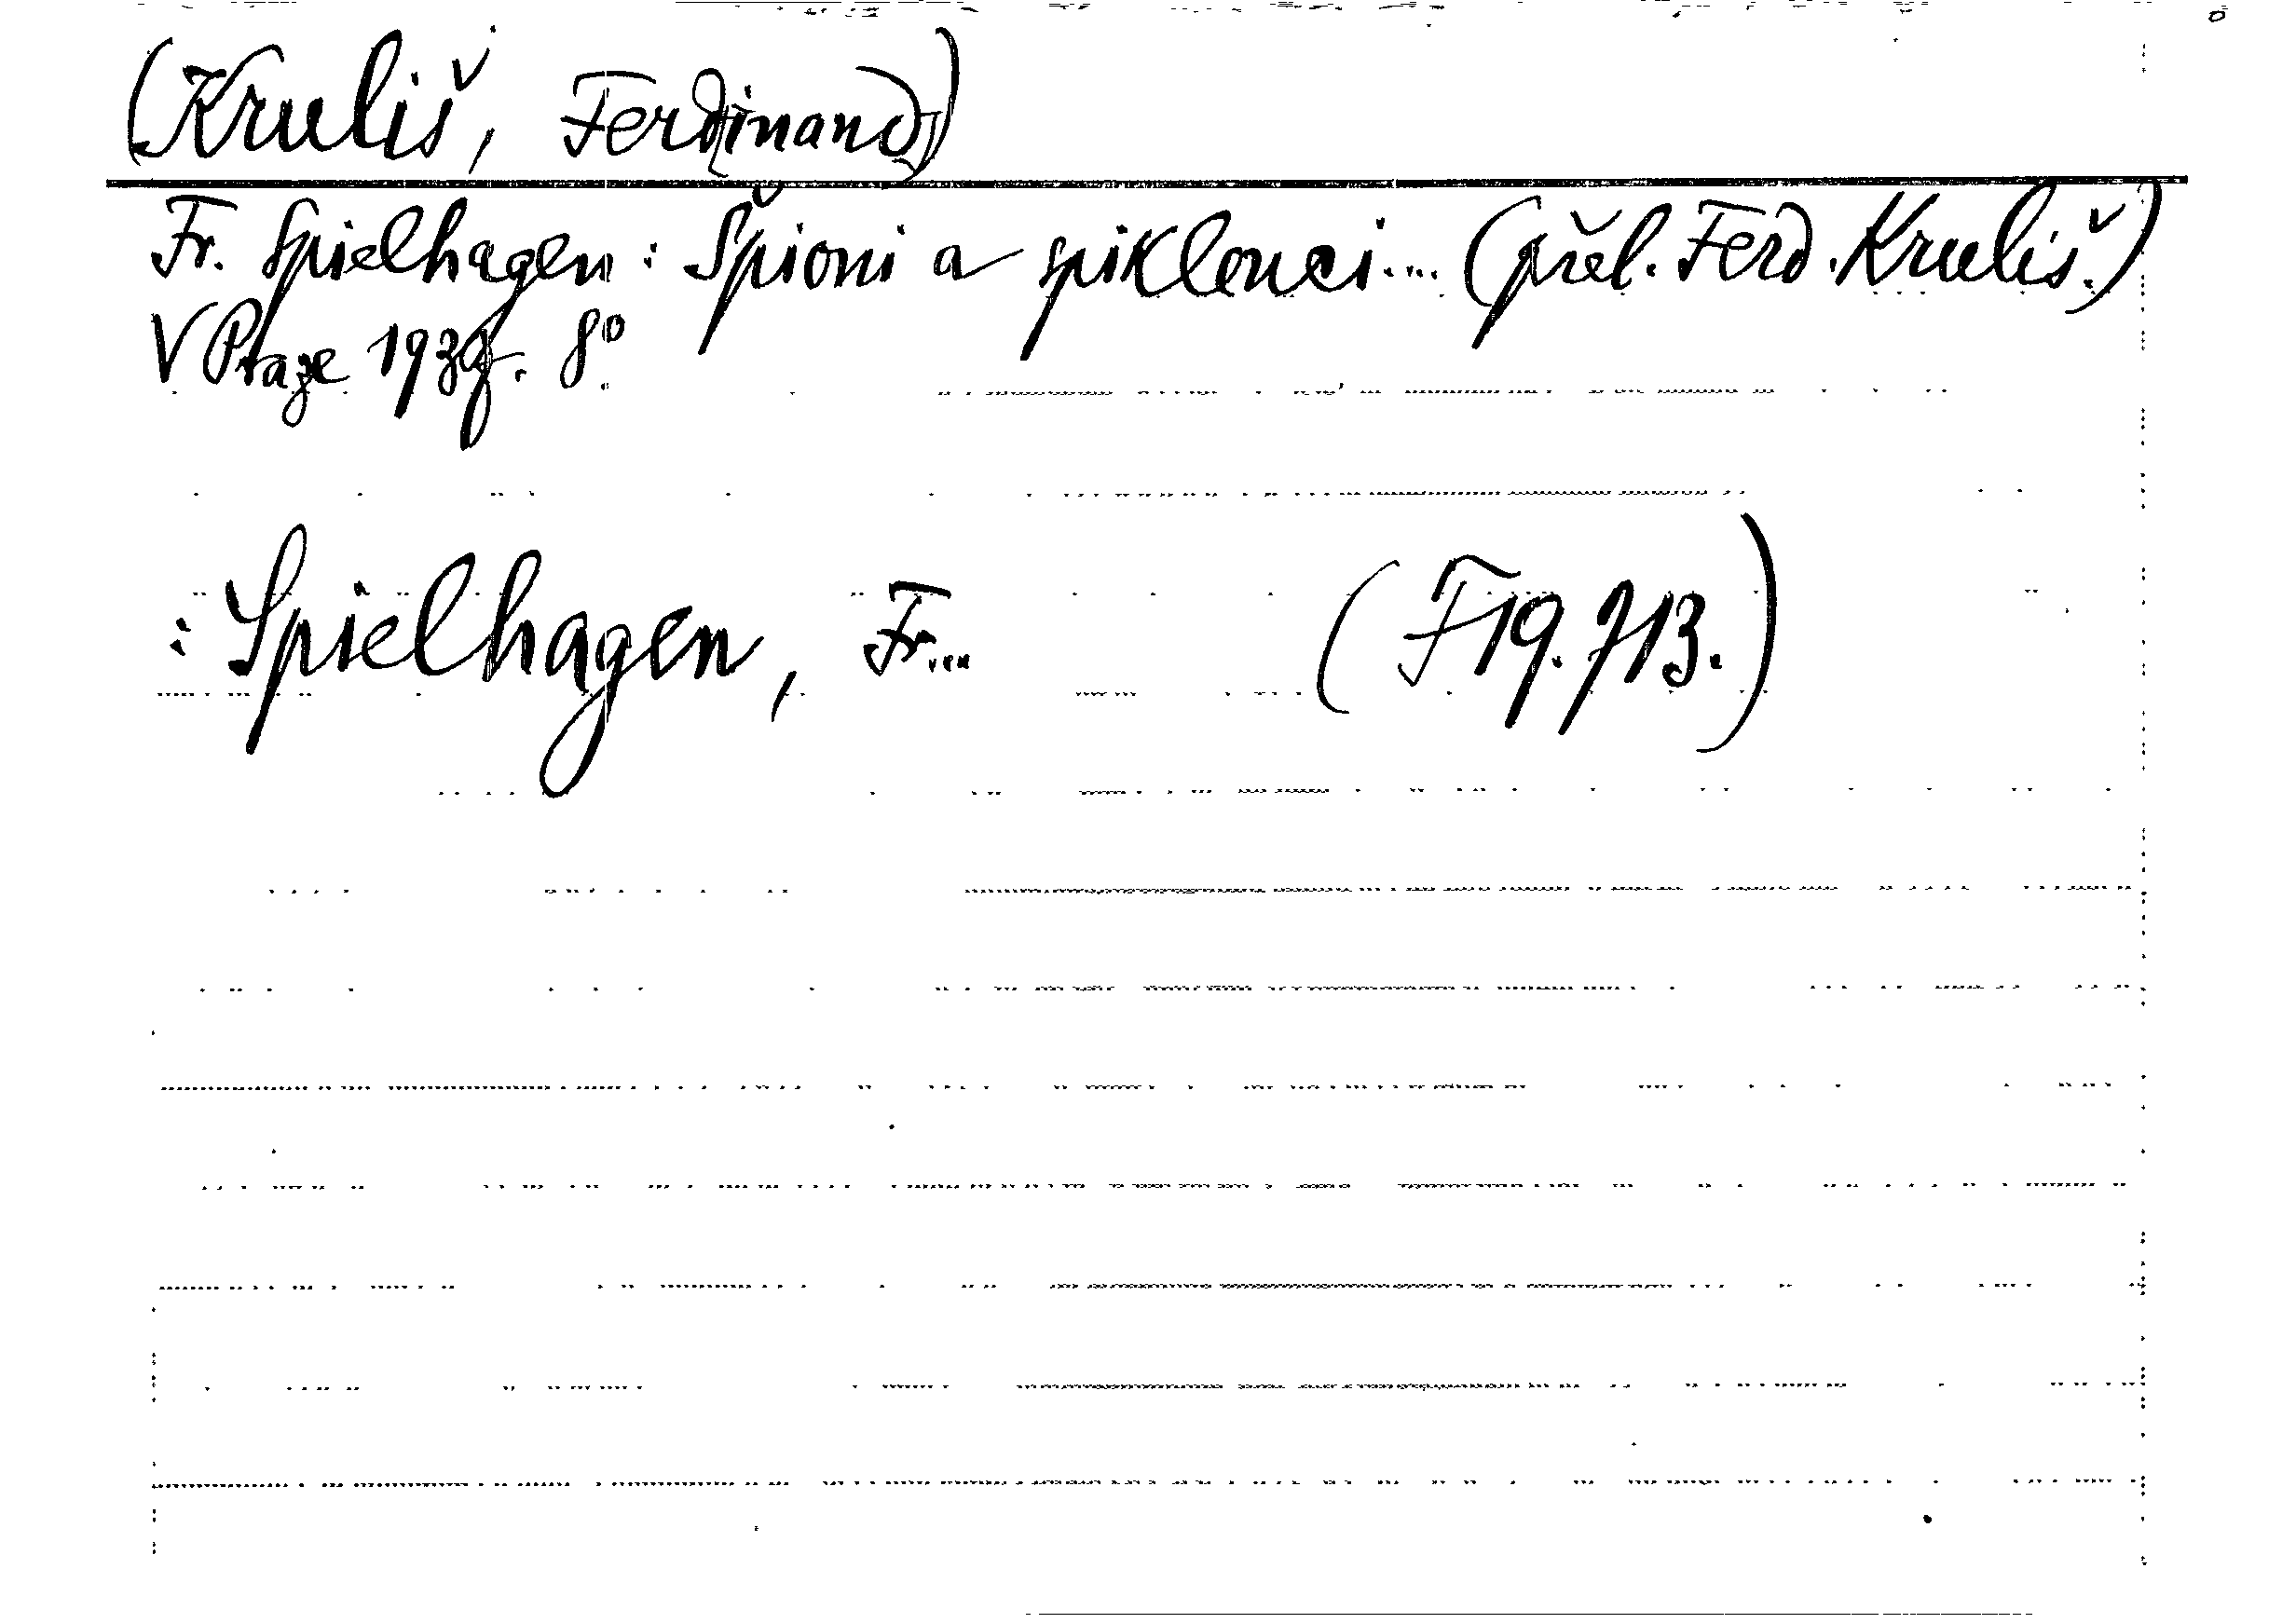 (Kruliš, Ferd[inand])
Fr. Spielhagen: Špioni a spiklenci.... (přel. Ferd. Kruliš.)
V Praze 1937. 8°.
: Spielhagen, Fr.... (F 19.713.)